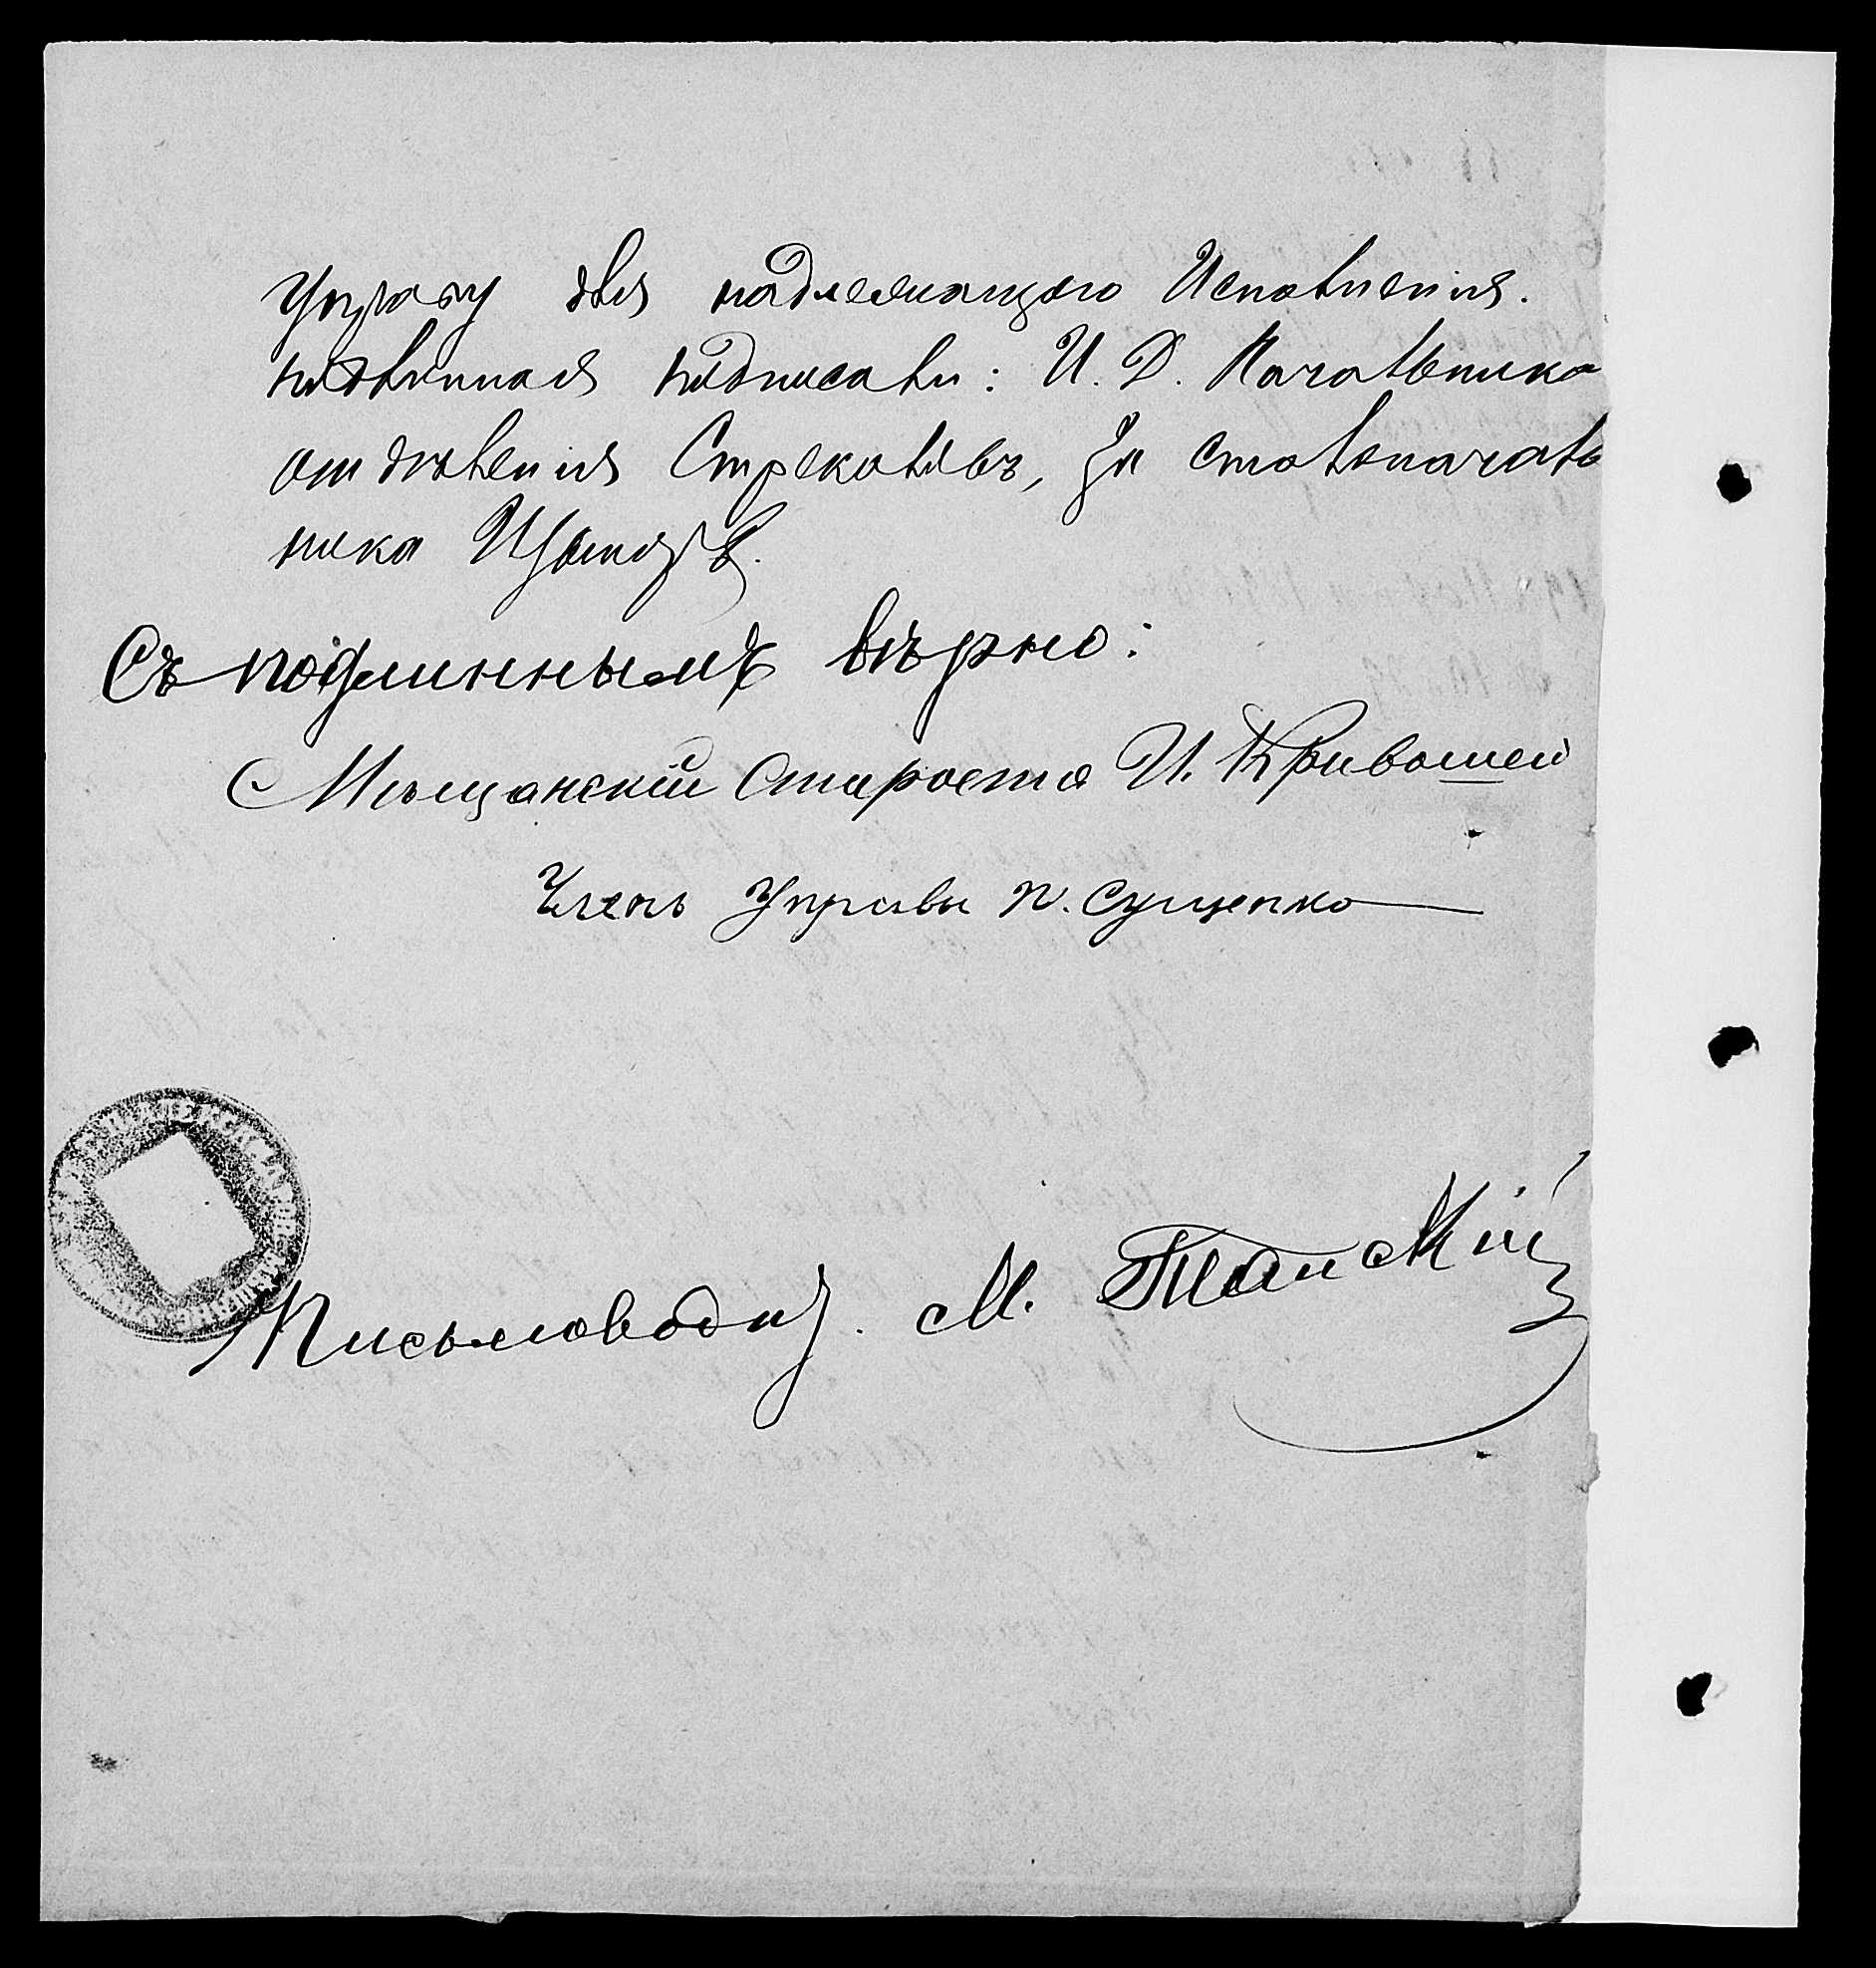 Управу для надлежащаго Исполненія.
подлинная подписали: И. Д. Начальника
отдѣленія Стрекаловъ, За столоначаль
ника
Съ подлиннымъ вѣрно:
Мѣщанскій Староста И. Кривошей
Членъ Управы П. Сущенко
Письмоводит. М. Танскій